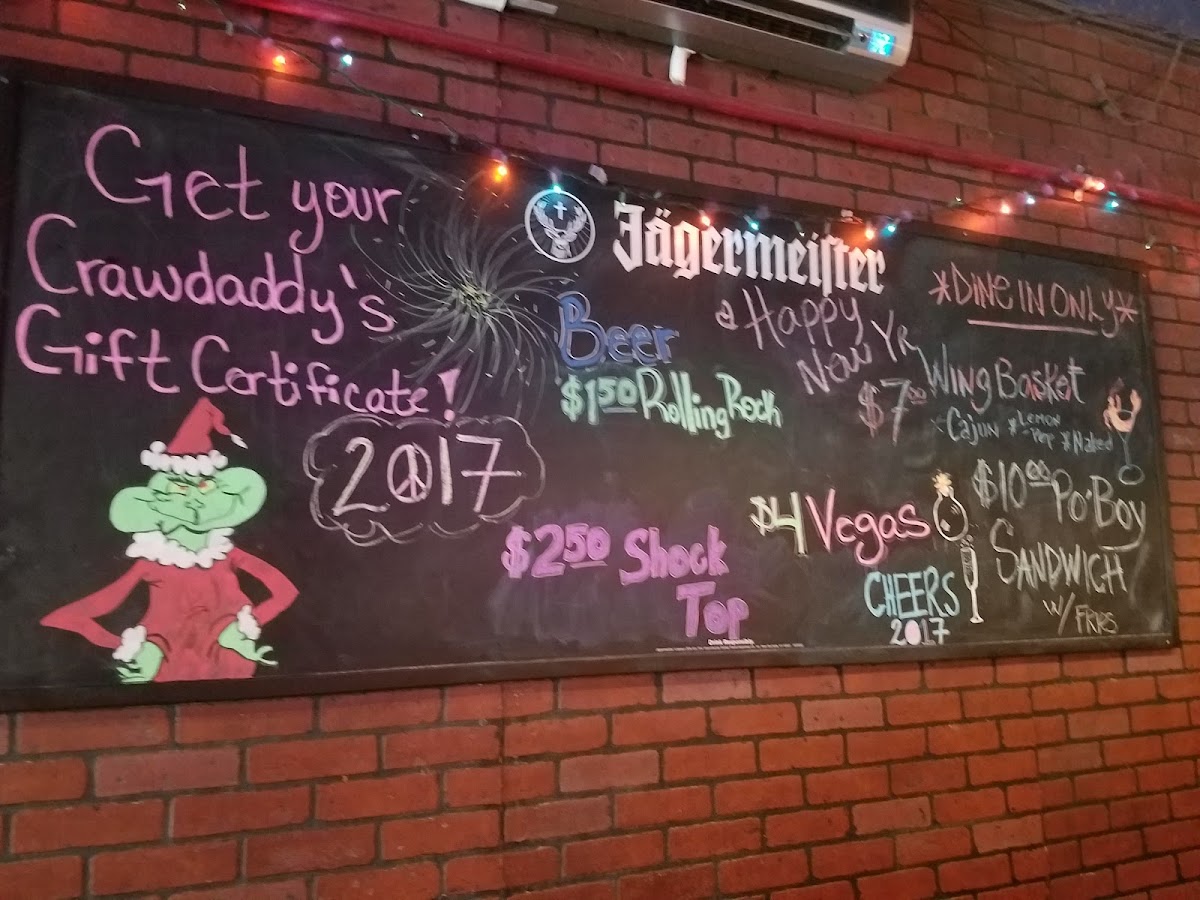 Get your
Crawdaddy's
Gift Certificate!
2017
Jägermeister
Beer
$1.50 Rolling Rock
$2.50 Shock
Top
a Happy
New Yr
$4 Vegas
CHEERS
2017
*DINE IN ONLY*
$7.00 WING BASKET
*CAJUN *LEMON
-PEP *NAKED
$10.00 PO'BOY
SANDWICH
W/ FRIES
Drink Responsibly.